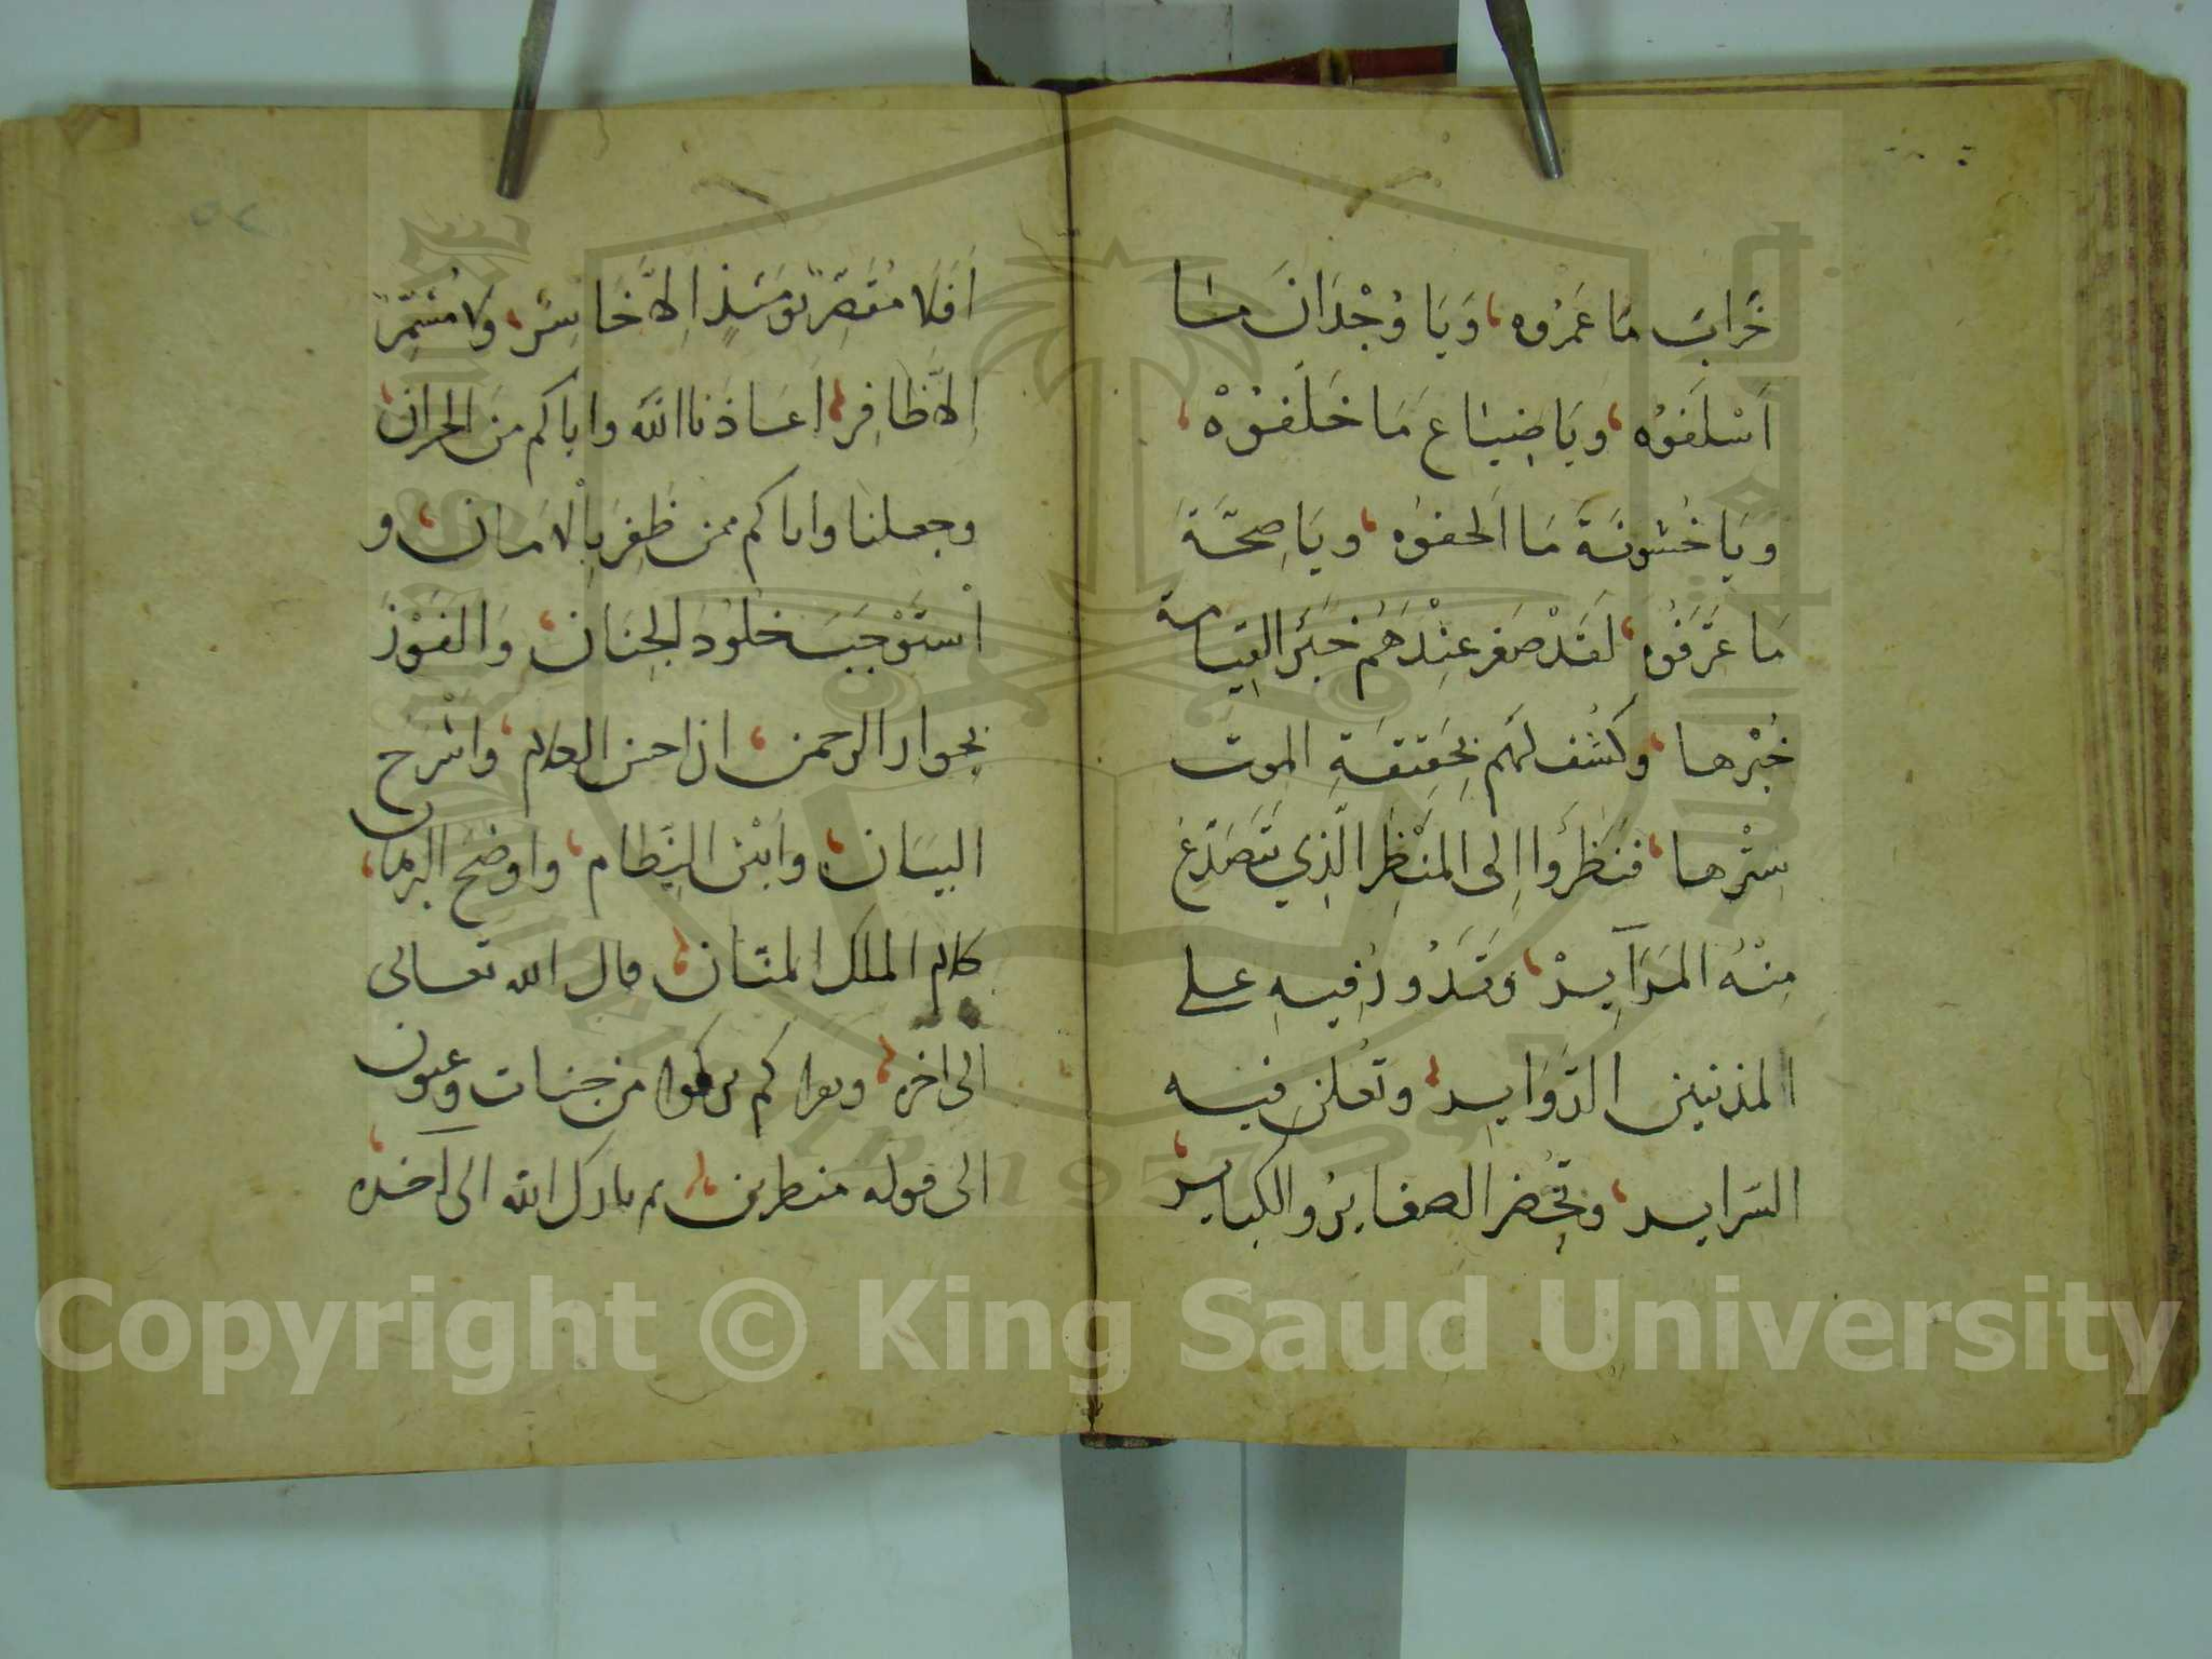 خَرابَ مَا عَمَرُوه، وَيَا وُجْدَانَ مَا
اَسْلَفوُه، ويَا ضِيَاع مَا خَلَّفوُهْ،
ويَا خُشونَةَ مَا الحفوُه، ويَا صِحَّةَ
مَا عَرَفُوه، لَقَدْ صَغر عِنْدَهُم خَبَرَ القِيامة
خُبْرها، وكُشف لَهُم بحَقِيقَةِ الموت
سِتْرها، فنَظَرُوا اِلى المنْظَرِ الّذِي تتَصَدّعُ
مِنْهُ المَرَآيِرْ، وتَدُورُ فِيهِ على
المذنبين الدّوَايِر، وتُعلن فيه
السّرايـر، وتُحْضر الصغايرُ والكبايِر،
اَفَلاَ مُقَصِّرٌ يَوْمَئِذٍ اِلاَّ خَاسِرٌ، ولا مُشَمِّرٌ
اِلاَّ ظَافِر، اَعَاذنا اللّه واياكم من الحرمان،
وجعلنا واياكم ممن ظَفِرَ بِالاَمَان، و
اسْتَوْجَبَ خلُوُدَ الجِنَان، وَالفَوْزَ
بِجوار الرحمن، ان احسن الكلام، واشْرَح
البيَان، وابْيَن النِّظَام، واوضح البرهان،
كلام الملك المنّان، قال الله تعالى
الى اخره، ويقرا كم تركوا من جنات وعيون
الى قوله منظرين، ثم بارك الله الى آخده،
٥٢
Copyright © King Saud University
1957